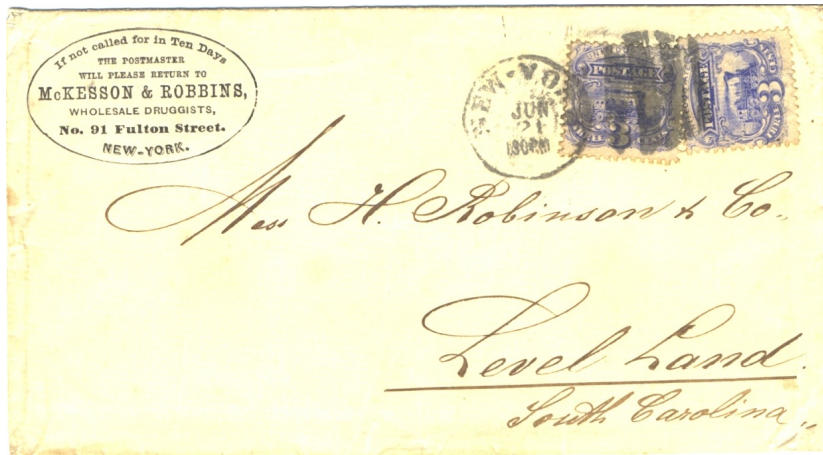 If not called for in Ten Days
THE POSTMASTER
WILL PLEASE RETURN TO
McKESSON & ROBBINS,
WHOLESALE DRUGGISTS,
No. 91 Fulton Street.
NEW-YORK.
NEW-YO
JUN
21
30PM
POSTAGE
3
POSTAGE
3
THREE
Mess H. Robinson & Co.
Level Land.
South Carolina,,